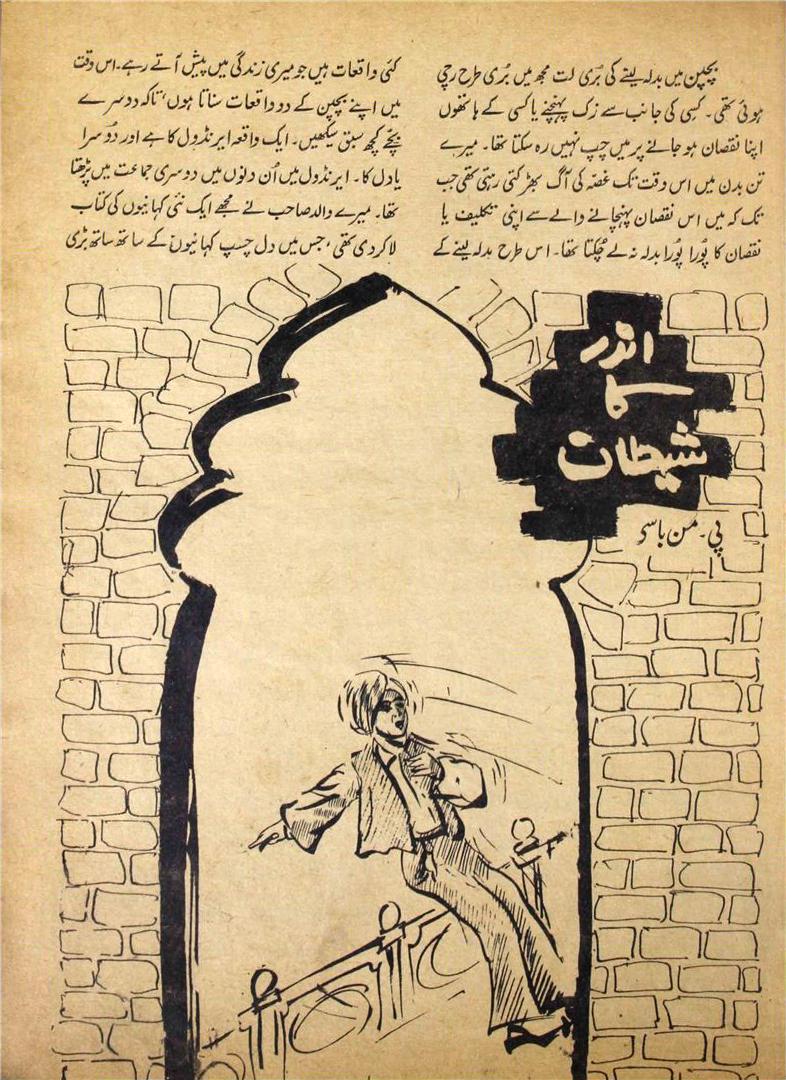 بچپن میں بدلہ لینے کی بُری لت مجھ میں بُری طرح رچی
ہوئی تھی۔ کسی کی جانب سے زک پہنچنے یا کسی کے ہاتھوں
اپنا نقصان ہو جانے پر میں چپ نہیں رہ سکتا تھا۔ میرے
تن بدن میں اس وقت تک غصّہ کی آگ بھڑکتی رہتی تھی جب
تک کہ میں اس نقصان پہنچانے والے سے اپنی تکلیف یا
نقصان کا پُورا پُورا بدلہ نہ لے چُکتا تھا۔ اس طرح بدلہ لینے کے
کئی واقعات ہیں جو میری زندگی میں پیش آتے رہے۔ اس وقت
میں اپنے بچپن کے دو واقعات سناتا ہوں، تاکہ دوسرے
بچّے کچھ سبق سیکھیں۔ ایک واقعہ ایرنڈول کا ہے اور دُوسرا
یادل کا۔ ایرنڈول میں اُن دنوں میں دوسری جماعت میں پڑھتا
تھا۔ میرے والد صاحب نے مجھے ایک نئی کہانیوں کی کتاب
لا کر دی تھی، جس میں دل چسپ کہانیوں کے ساتھ ساتھ بڑی
اندر
کا
شیطان
پی۔